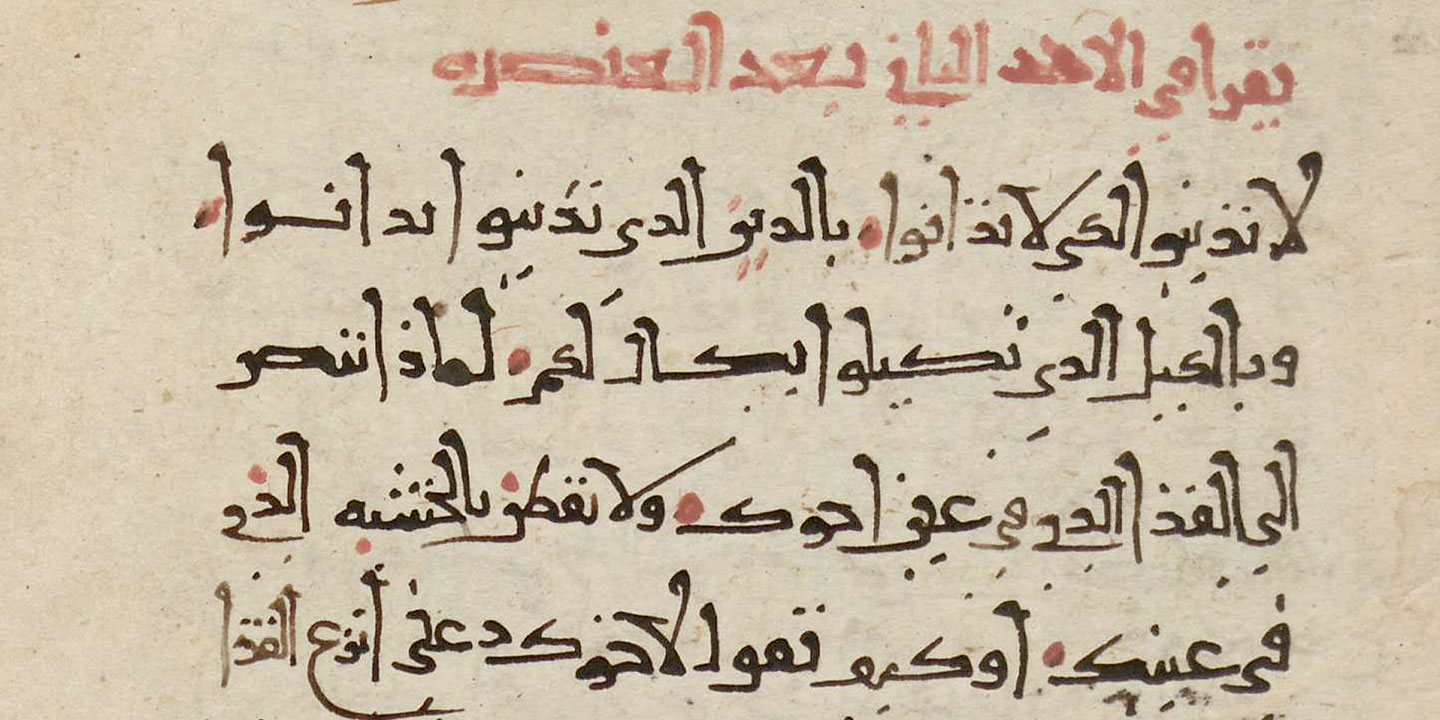 يقرا في الاحد الثاني بعد العنصره
لا تذينوا لكي لا تذانوا. بالدين الدي تذينوا به تدانوا
وبالكيل الدي تكيلوا يكال لكم. لماذا تنصر
الي القذا الدي في عين اخوك. ولا تفطن بالخشبه الذي
في عينك. او كيف تقول لاخوك دعني انزع القذا